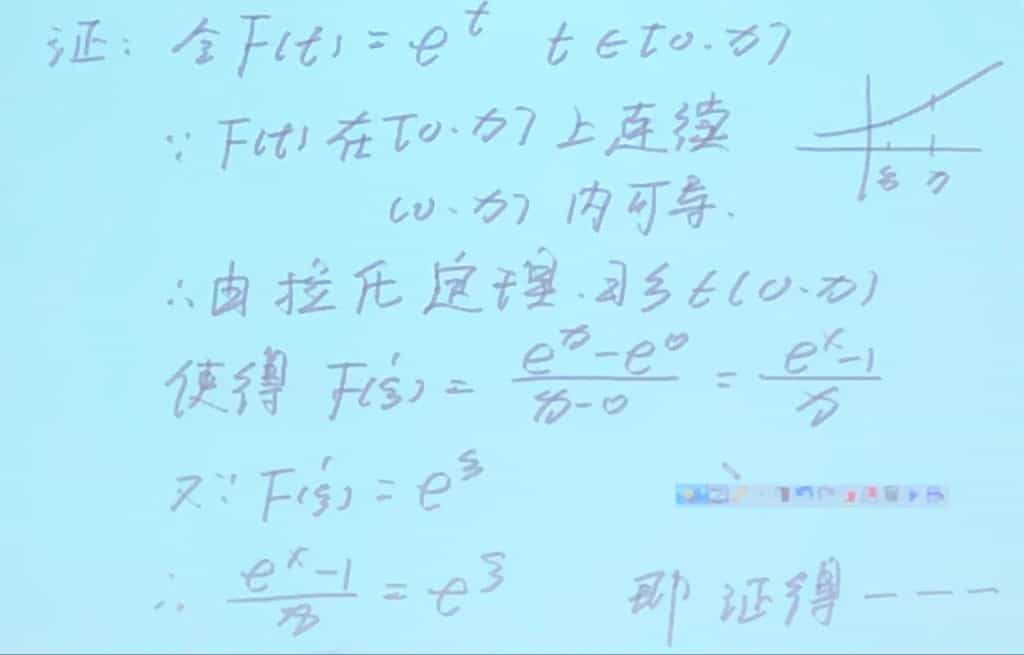 证: 令 F(t) = e^t t ∈ [0.x]
∵ F(t) 在 [0.x] 上连续
(0.x) 内可导.
ξ x
∴ 由拉氏定理.ヨξ ∈ (0.x)
使得 F'(ξ) = (e^x - e^0)/(x - 0) = (e^x - 1)/x
又∵ F'(ξ) = e^ξ
∴ (e^x - 1)/x = e^ξ 即证得 - - - -